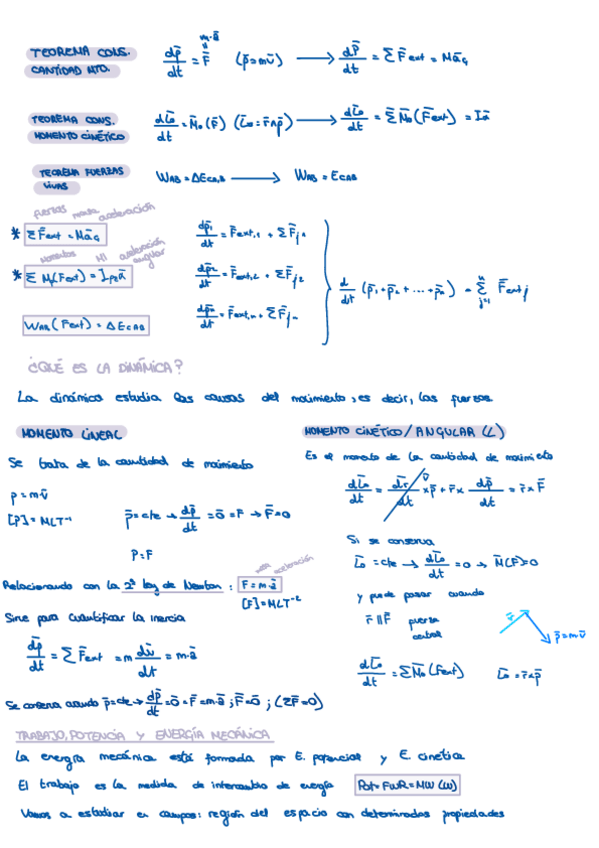 m·ā
TEOREMA CONS. dp̄/dt = F̄ (p̄=mv̄) → dp̄/dt = ΣF̄ext = Mā_G
CANTIDAD MTO.
TEOREMA CONS. dL̄o/dt = M̄o(F̄) (L̄o = r̄∧p̄) → dL̄o/dt = ΣM̄o(F̄ext) = Iᾱ
MOMENTO CINÉTICO
TEOREMA FUERZAS W_AB = ΔEc_AB → W_AB = Ec_AB
VIVAS
fuerzas masa aceleración
* ΣF̄ext = Mā_G
dp̄₁/dt = F̄ext,₁ + ΣF̄j₁
momentos MI aceleración angular
* Σ M(F̄ext) = I ᾱ
dp̄₂/dt = F̄ext,₂ + ΣF̄j₂
d/dt (p̄₁+p̄₂+...+p̄n) = Σ F̄ext j
n
j=1
dp̄n/dt = F̄ext,n + ΣF̄jn
W_AB (F̄ext) = ΔEc_AB
¿QUÉ ES LA DINÁMICA?
La dinámica estudia las causas del movimiento, es decir, las fuerzas
MOMENTO LINEAL
Se trata de la cantidad de movimiento
p = mv̄
[p] = MLT⁻¹
p̄ = cte → dp̄/dt = ō = F → F̄=0
P=F
Relacionando con la 2ª ley de Newton: F = m·ā
masa aceleración
[F] = MLT⁻²
Sirve para cuantificar la inercia
dp̄/dt = ΣF̄ext = m dv̄/dt = m·ā
Se conserva cuando p̄=cte → dp̄/dt = ō = F̄ = m·ā ; F̄=ō ; (ΣF=0)
MOMENTO CINÉTICO / ANGULAR (L)
Es el momento de la cantidad de movimiento
dL̄o/dt = dr̄/dt × p̄ + r̄ × dp̄/dt = r̄ × F̄
v̄
Si se conserva
L̄o = cte → dL̄o/dt = 0 → M̄(F)=0
y puede pasar cuando
r̄ ∥ F̄ fuerza
central
r̄
p̄=mv̄
dL̄o/dt = ΣM̄o(F̄ext) L̄o = r̄×p̄
TRABAJO, POTENCIA Y ENERGÍA MECÁNICA
La energía mecánica está formada por E. potencial y E. cinética
El trabajo es la medida de intercambio de energía Pot= FWR = MW (W)
Vamos a estudiar en campos: región del espacio con determinadas propiedades